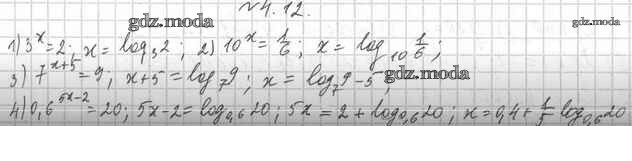 №4.12.
gdz.moda
gdz.moda
1) 3^x=2; x = log_3 2; 2) 10^x = 1/6; x = log_10 1/6;
gdz.moda
3) 7^(x+5) = 9; x+5 = log_7 9; x = log_7 9 - 5;
4) 0,6^(5x-2) = 20; 5x-2 = log_0,6 20; 5x = 2 + log_0,6 20; x = 0,4 + 1/5 log_0,6 20